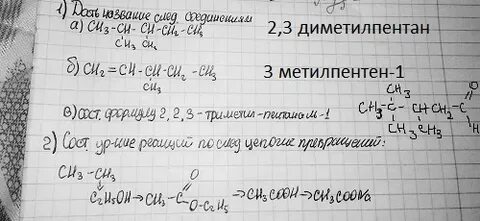 1) Дать название след. соединениям
а) CH3-CH-CH-CH2-CH3 2,3 диметилпентан
CH3 CH3
б) CH2=CH-CH-CH2-CH3 3 метилпентен-1
CH3
в) сост. формулу 2,2,3-триметил-пентаналь-1
CH3
CH3-C-CH-CH2-C
O
H
CH3 CH3
2) Сост. ур-ние реакций по след. цепочке превращений:
CH3-CH3
C2H5OH→CH3-C
O
O-C2H5
→CH3COOH→CH3COONa